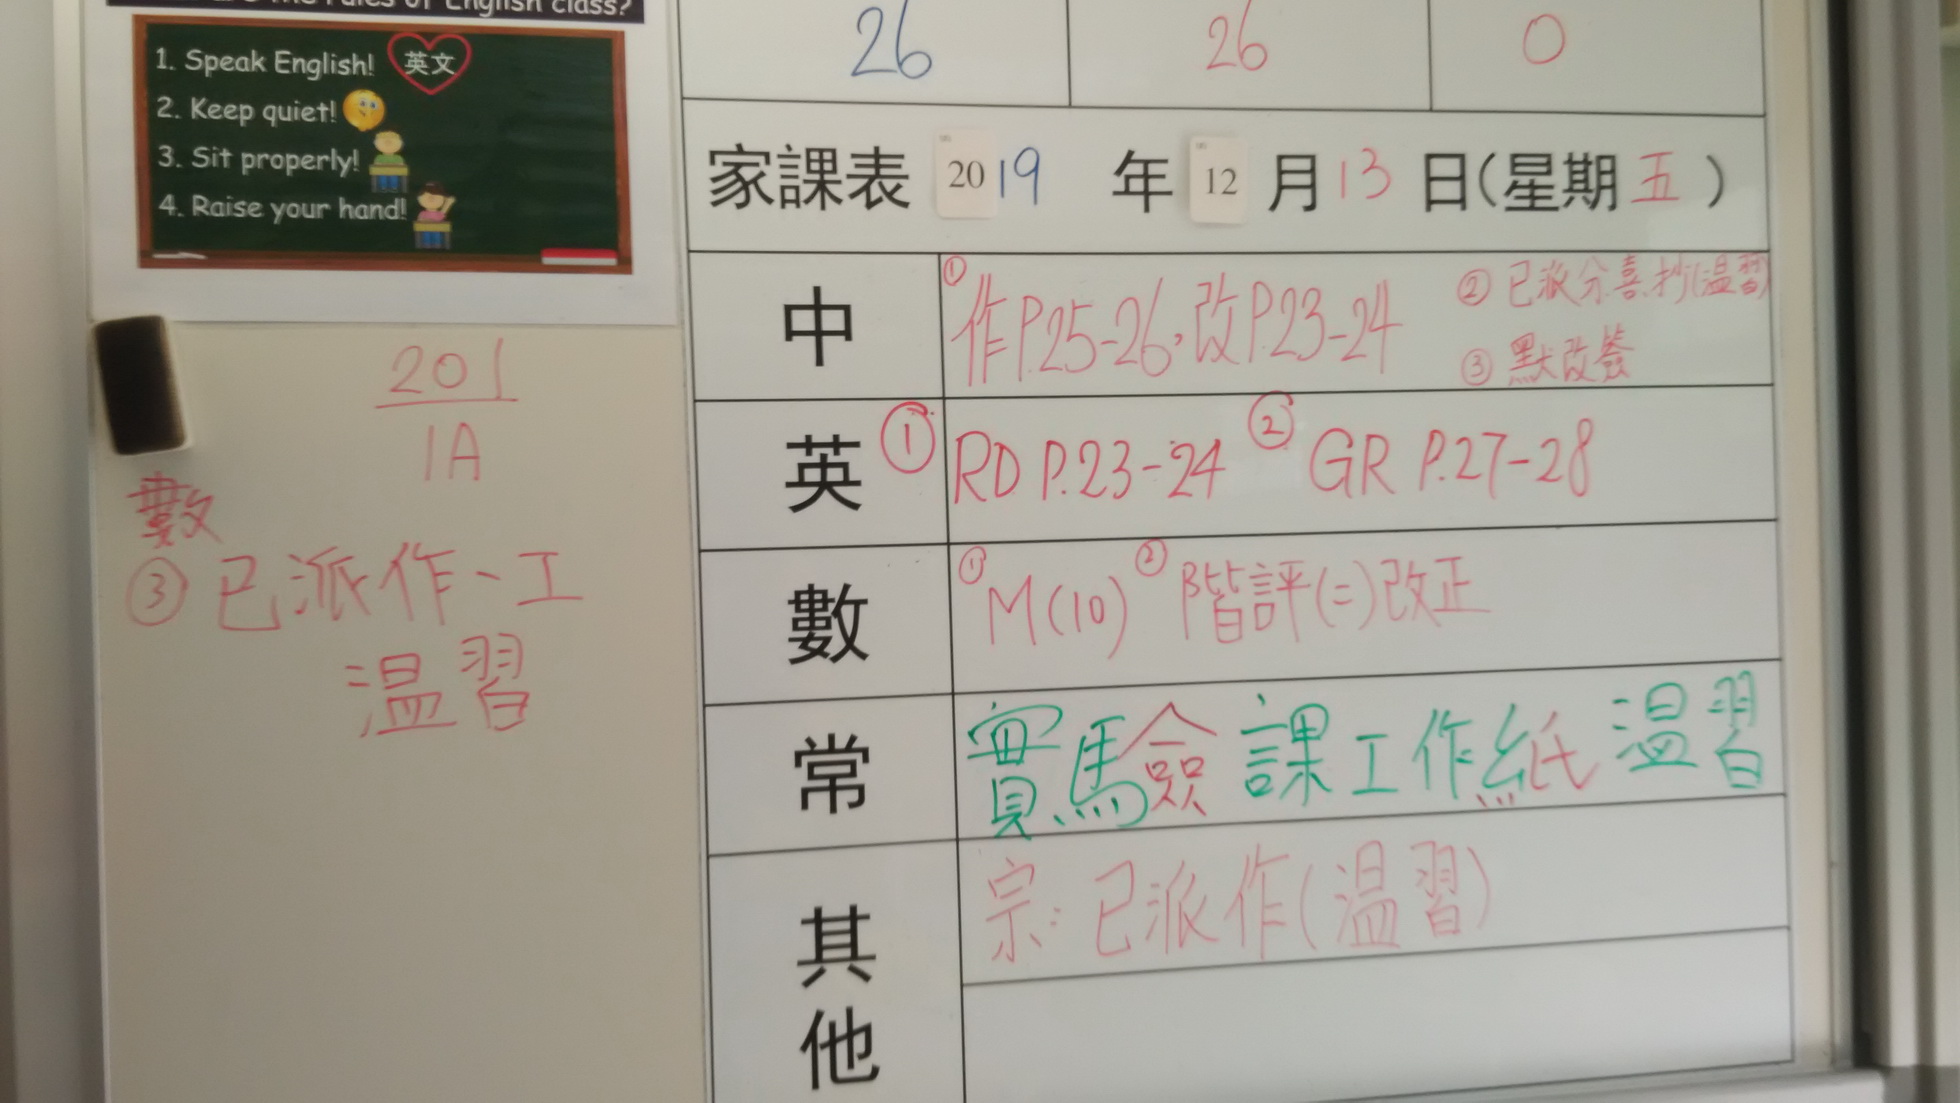 rules of English class?
1. Speak English! 英文
2. Keep quiet!
3. Sit properly!
4. Raise your hand!
201
1A
數
③已派作、工
温習
26 26 0
家課表 2019 年 12 月 13 日(星期五)
中 ①作P.25-26,改P.23-24
②已派分喜抄(温習)
③默改簽
英 ①RD P.23-24 ②GR P.27-28
數 ①M(10) ②階評(二)改正
常 實驗課工作紙温習
其他 宗:已派作(温習)